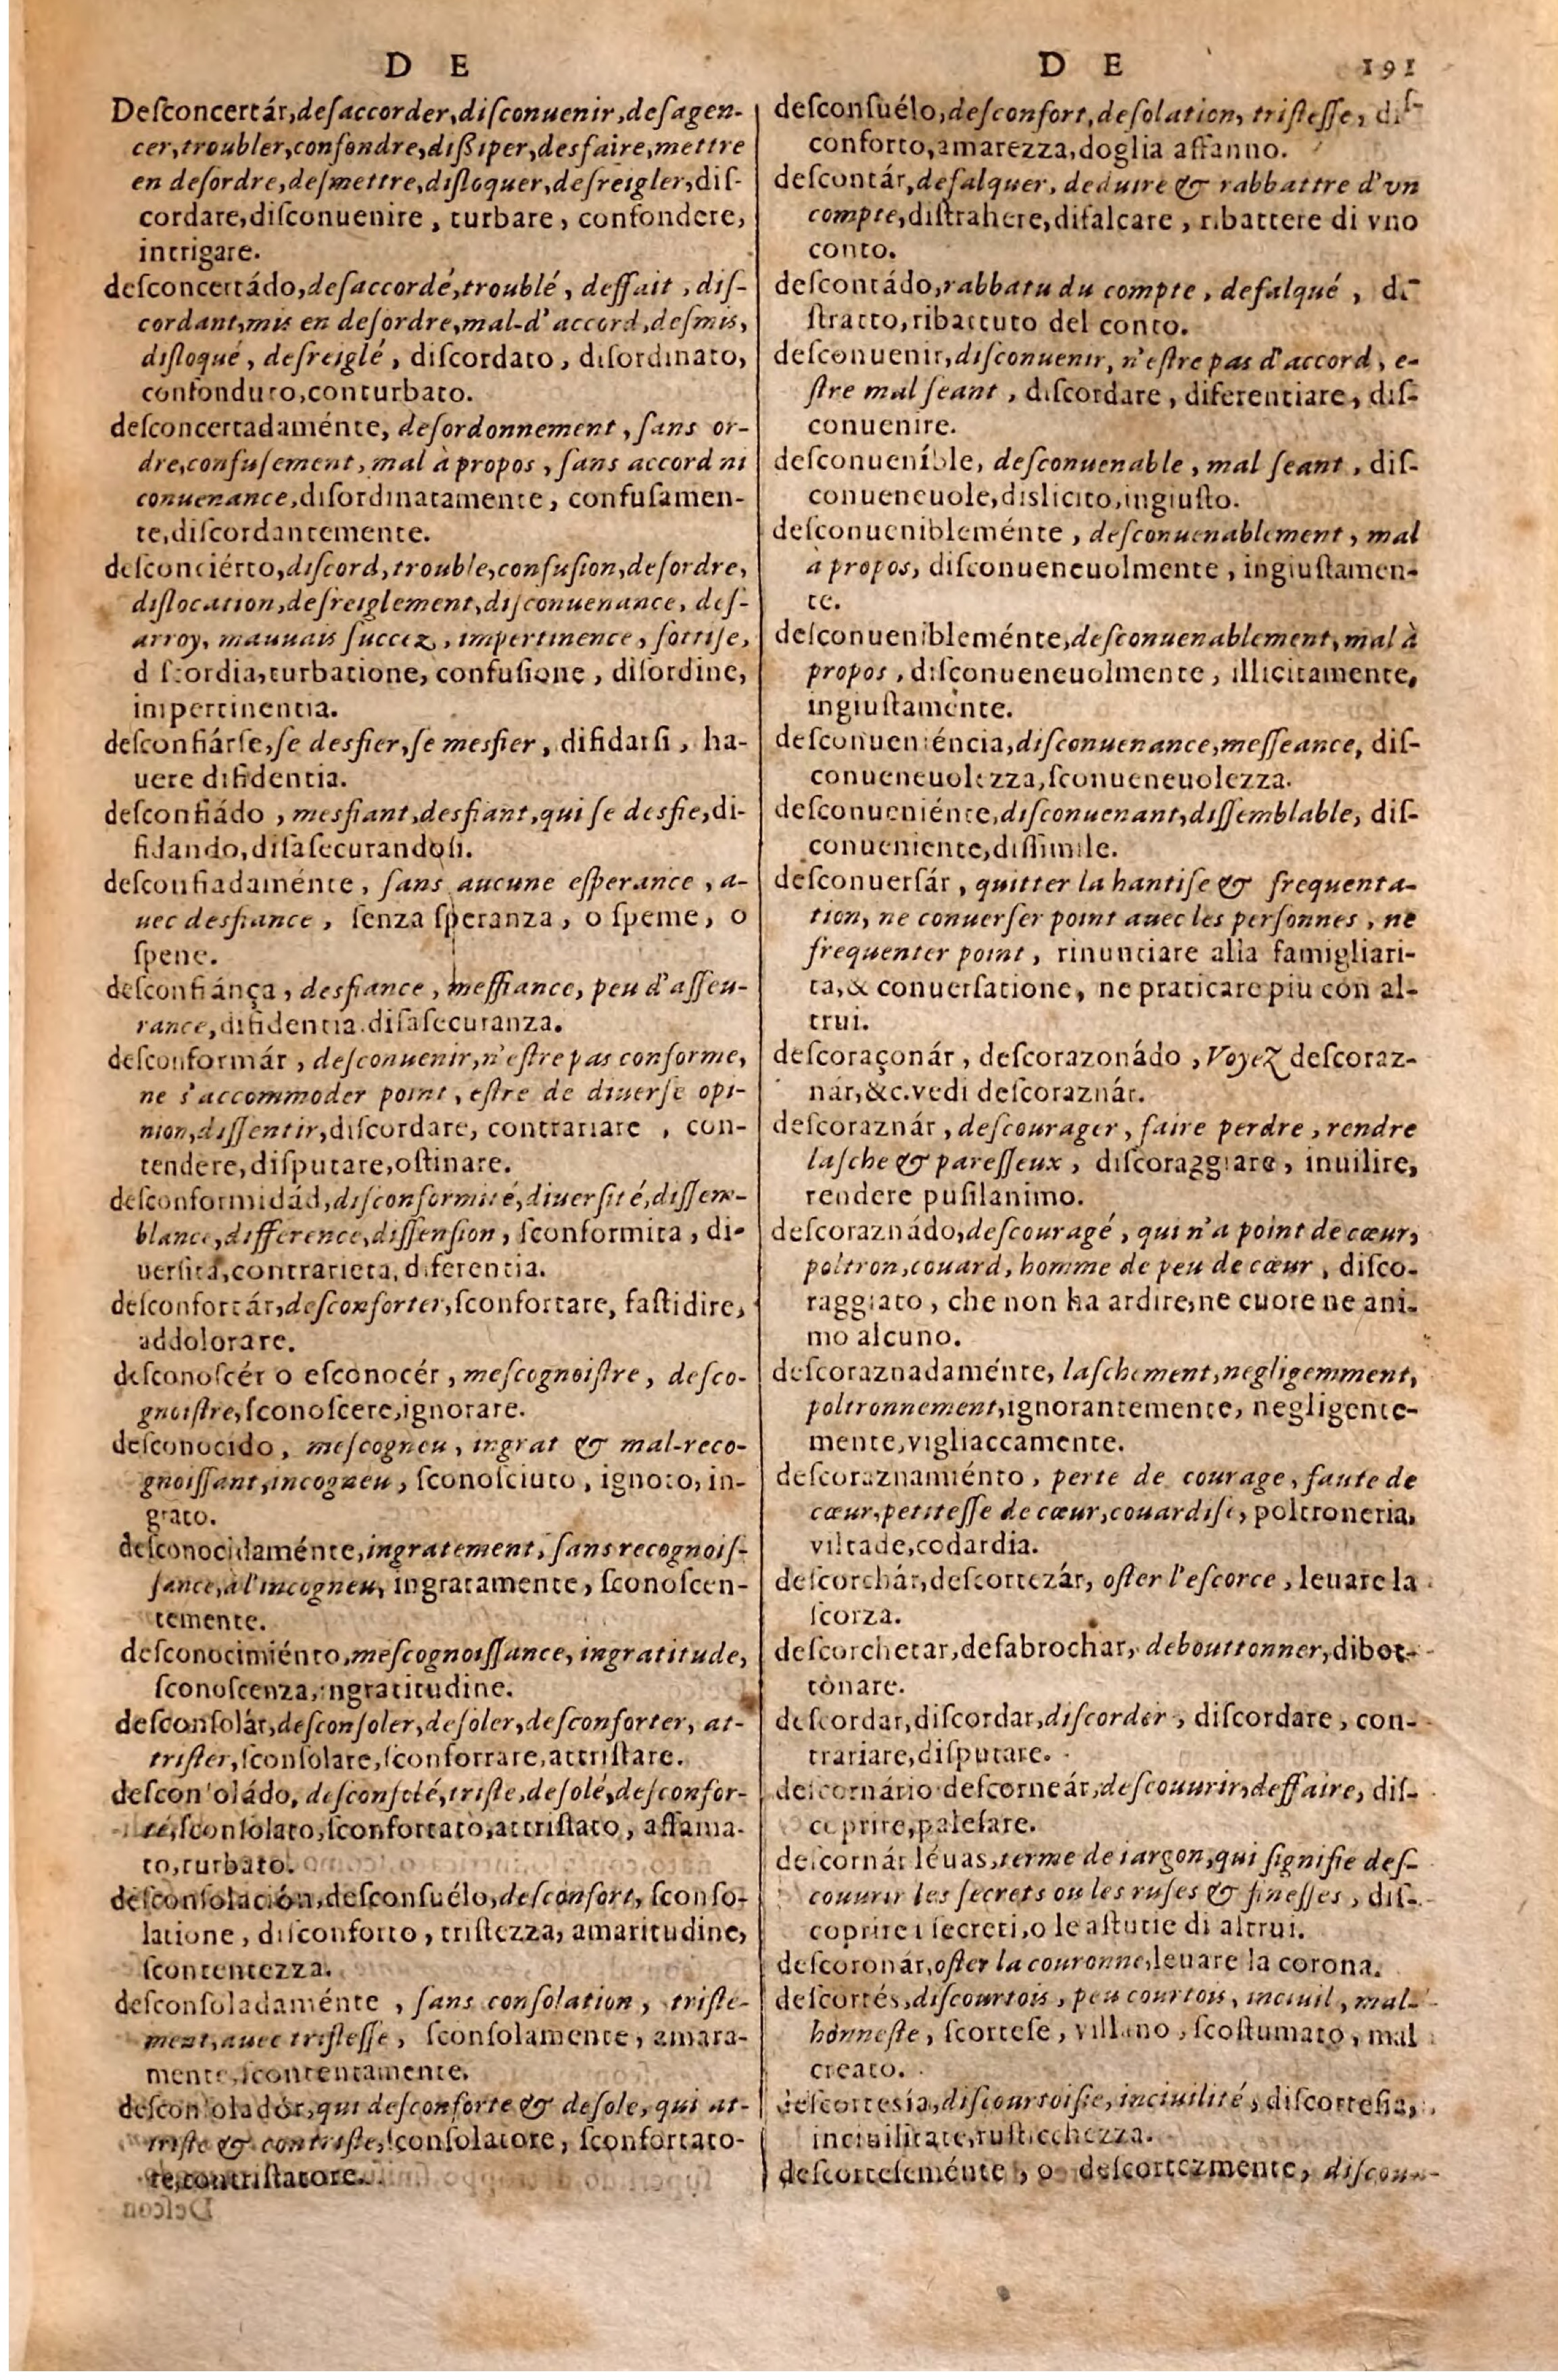 D E
Deſconcertár,deſaccorder,diſconuenir,deſagen-
cer,troubler,confondre,diſsiper,desfaire,mettre
en deſordre,deſmettre,diſloquer,deſreigler,diſ-
cordare,diſconuenire, turbare, confondere,
intrigare.
deſconcertádo,deſaccordé,troublé, deffait, diſ-
cordant,mis en deſordre,mal-d'accord,deſmis,
diſloqué, deſreiglé, diſcordato, diſordinato,
confonduto,conturbato.
deſconcertadaménte, deſordonnement, ſans or-
dre,confuſement, mal à propos, ſans accord ni
conuenance,diſordinatamente, confuſamen-
te,diſcordantemente.
deſconciérto,diſcord,trouble,confuſion,deſordre,
diſlocation,deſreiglement,diſconuenance, deſ-
arroy, mauuais ſuccez, impertinence, ſottiſe,
d ſcordia,turbatione, confuſione, diſordine,
impertinentia.
deſconfiárſe,ſe desfier,ſe mesfier, difidarſi, ha-
uere difidentia.
deſconfiádo, mesfiant,desfiant,qui ſe desfie,di-
fidando,diſaſecurandoſi.
deſconfiadaménte, ſans aucune eſperance, a-
uec desfiance, ſenza ſperanza, o ſpeme, o
ſpene.
deſconfiánça, desfiance, meffiance, peu d'aſſeu-
rance,difidentia.diſaſecuranza.
deſconformár, deſconuenir,n'eſtre pas conforme,
ne s'accommoder point, eſtre de diuerſe opi-
nion,diſſentir,diſcordare, contrariare, con-
tendere,diſputare,oſtinare.
deſconformidád,diſconformité,diuerſité,diſſem-
blance,difference,diſſenſion, ſconformita, di-
uerſita,contrarieta, diferentia.
deſconfortár,deſconforter,ſconfortare, faſtidire,
addolorare.
deſconoſcér o eſconocér, meſcognoiſtre, deſco-
gnoiſtre,ſconoſcere,ignorare.
deſconocido, meſcogneu, ingrat & mal-reco-
gnoiſſant,incogneu, ſconoſciuto, ignoto, in-
grato.
deſconocidaménte,ingratement, ſans recognoiſ-
ſance,à l'incogneu, ingratamente, ſconoſcen-
temente.
deſconocimiénto,meſcognoiſſance, ingratitude,
ſconoſcenza,ingratitudine.
deſconſolár,deſconſoler,deſoler,deſconforter, at-
triſter,ſconſolare,ſconforrare,attriſtare.
deſconſoládo, deſconſolé,triſte,deſolé,deſconfor-
té,ſconſolato,ſconfortato,attriſtato, affama-
to,turbato.
deſconſolación,deſconſuélo,deſconfort, ſconſo-
latione, diſconforto, triſtezza, amaritudine,
ſcontentezza.
deſconſoladaménte, ſans conſolation, triſte-
ment,auec triſteſſe, ſconſolamente, amara-
mente,ſcontentamente.
deſconſoladór,qui deſconforte & deſole, qui at-
triſte & contriſte,ſconſolatore, ſconfortato-
re,contriſtatore.
D E 191
deſconſuélo,deſconfort,deſolation, triſteſſe, diſ-
conforto,amarezza,doglia affanno.
deſcontár,defalquer, deduire & rabbattre d'vn
compte,diſtrahere,difalcare, ribattere di vno
conto.
deſcontádo,rabbatu du compte, defalqué, di-
ſtratto,ribattuto del conto.
deſconuenir,diſconuenir, n'eſtre pas d'accord, e-
ſtre mal ſeant, diſcordare, diferentiare, diſ-
conuenire.
deſconueníble, deſconuenable, mal ſeant, diſ-
conueneuole,dislicito,ingiuſto.
deſconuenibleménte, deſconuenablement, mal
à propos, diſconueneuolmente, ingiuſtamen-
te.
deſconuenibleménte,deſconuenablement,mal à
propos, diſconueneuolmente, illicitamente,
ingiuſtamente.
deſconueniéncia,diſconuenance,meſſeance, diſ-
conueneuolezza,ſconueneuolezza.
deſconueniénte,diſconuenant,diſſemblable, diſ-
conueniente,diſſimile.
deſconuerſár, quitter la hantiſe & frequenta-
tion, ne conuerſer point auec les perſonnes, ne
frequenter point, rinunciare alla famigliari-
ta,& conuerſatione, ne praticare piu con al-
trui.
deſcoraçonár, deſcorazonádo, Voyez deſcoraz-
nár,&c.vedi deſcoraznár.
deſcoraznár, deſcourager, faire perdre, rendre
laſche & pareſſeux, diſcoraggiare, inuilire,
rendere puſilanimo.
deſcoraznádo,deſcouragé, qui n'a point de cœur,
poltron,couard, homme de peu de cœur, diſco-
raggiato, che non ha ardire,ne cuore ne ani-
mo alcuno.
deſcoraznadaménte, laſchement,negligemment,
poltronnement,ignorantemente, negligente-
mente,vigliaccamente.
deſcoraznamiénto, perte de courage, faute de
cœur,petiteſſe de cœur,couardiſe, poltroneria,
viltade,codardia.
deſcorchár,deſcortezár, oſter l'eſcorce, leuare la
ſcorza.
deſcorchetar,deſabrochar, debouttonner,dibot-
tonare.
deſcordar,diſcordar,diſcorder, diſcordare, con-
trariare,diſputare.
deſcornár o deſcorneár,deſcouurir,deffaire, diſ-
coprire,paleſare.
deſcornár léuas,terme de iargon,qui ſignifie deſ-
couurir les ſecrets ou les ruſes & fineſſes, diſ-
coprire i ſecreti,o le aſtutie di altrui.
deſcoronár,oſter la couronne,leuare la corona.
deſcortés,diſcourtois, peu courtois, inciuil, mal-
honneſte, ſcorteſe, villano, ſcoſtumato, mal
creato.
deſcorteſía,diſcourtoiſie,inciuilité, diſcorteſia,
inciuilitate,ruſticchezza.
deſcorteſeménte, o deſcortezmente, diſcour-